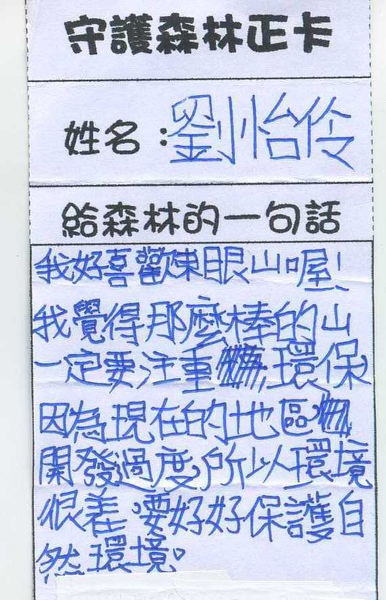 守護森林正卡
姓名：劉怡伶
給森林的一句話
我好喜歡煉眼山喔！
我覺得那麼棒的山
一定要注重環保，
因為現在的地區
開發過度，所以環境
很差，要好好保護自
然環境。